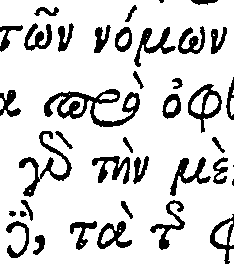 τῶν νόμων
α πρὸ ὀφθ
γὰρ τὴν μὲ
τὰ τῆς φ